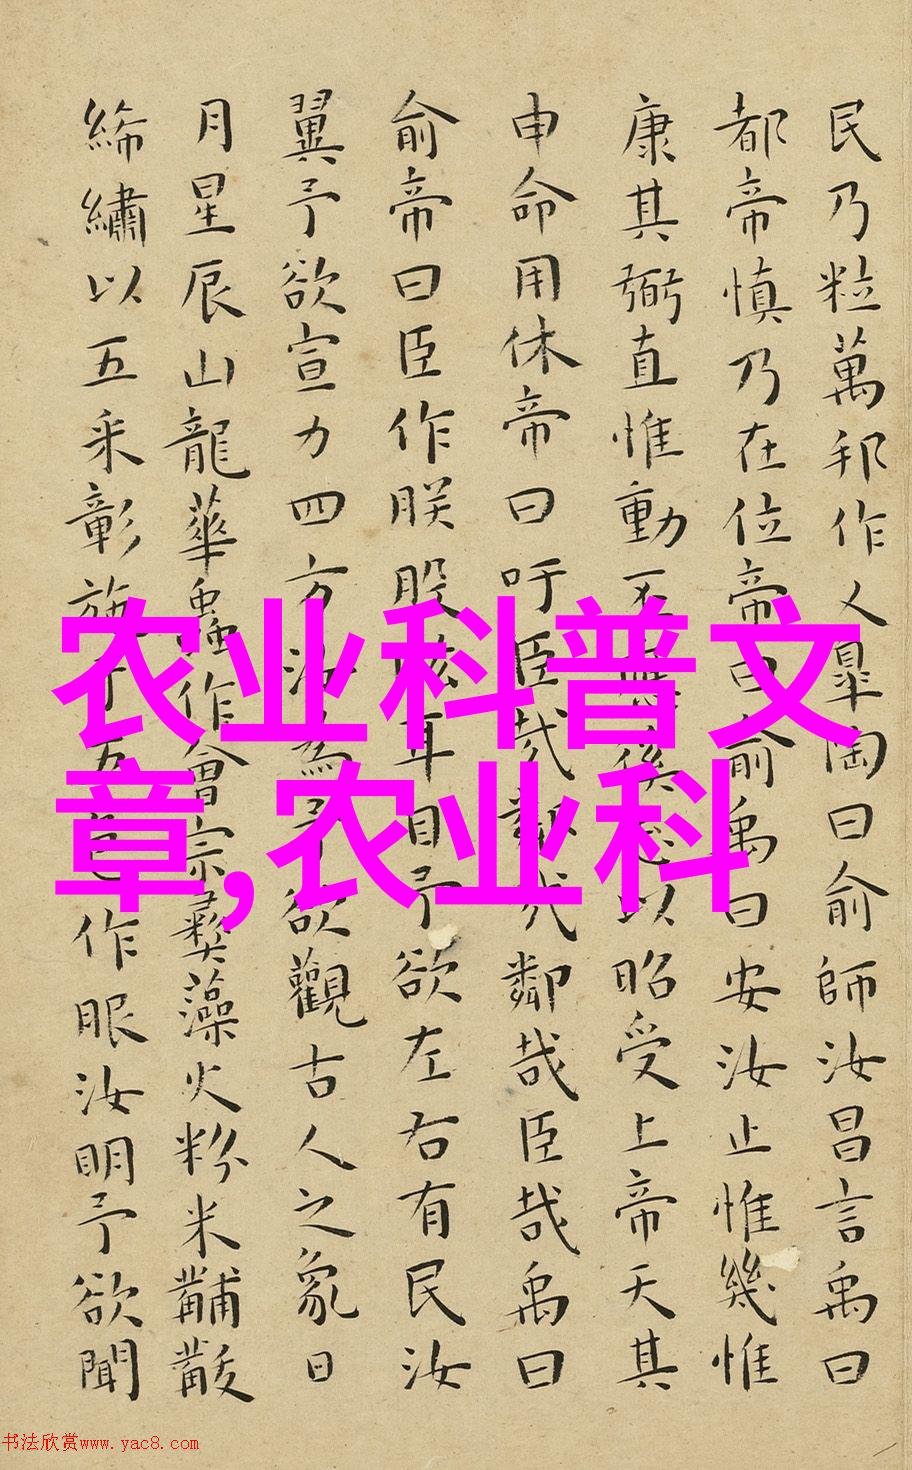 民乃粒萬邦作乂皐陶曰俞師汝昌言禹曰
都帝慎乃在位帝曰俞禹曰安汝止惟幾惟
康其弼直惟動丕應徯志以昭受上帝天其
申命用休帝曰吁臣哉鄰哉鄰哉臣哉禹曰
俞帝曰臣作朕股肱耳目予欲左右有民汝
翼予欲宣力四方汝為予欲觀古人之象日
月星辰山龍華蟲作會宗彝藻火粉米黼黻
絺繡以五采彰施于五色作服汝明予欲聞
农业科普文
章,农业科
书法欣赏www.yac8.com